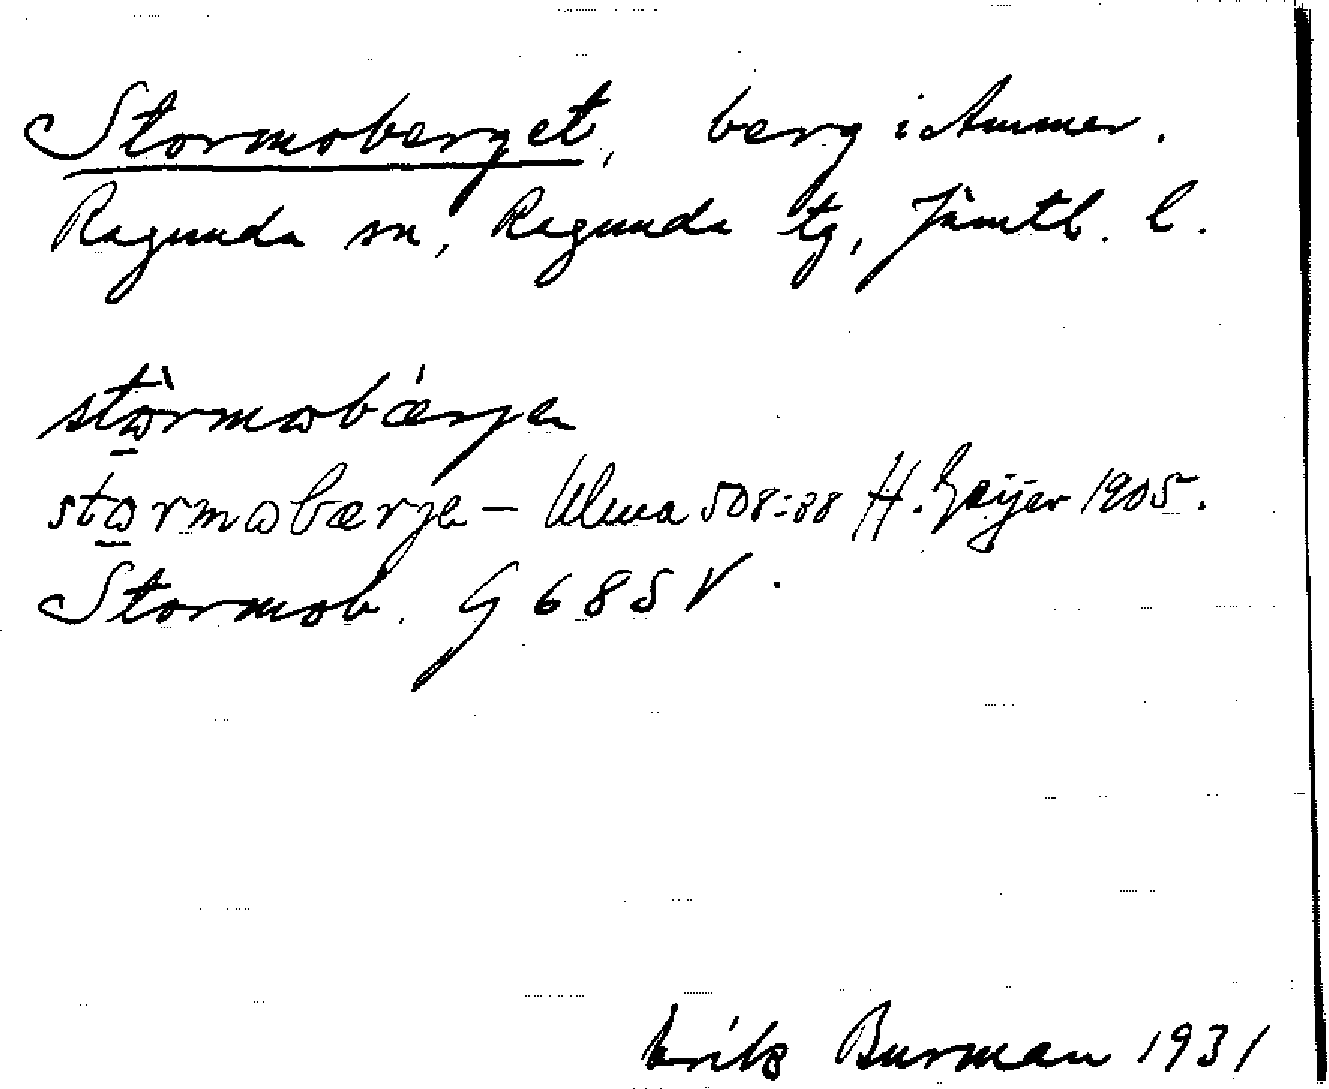 Stormoberget, berg i Ammer.
Ragunda sn, Ragunda tg, Jämtl. l.
stɷ̀rmɷbǽrjə
stɷrmɷbærjə – Ulma 508:88 H. Geijer 1905.
Stormob. G 68 S V.
Erik Burman 1931